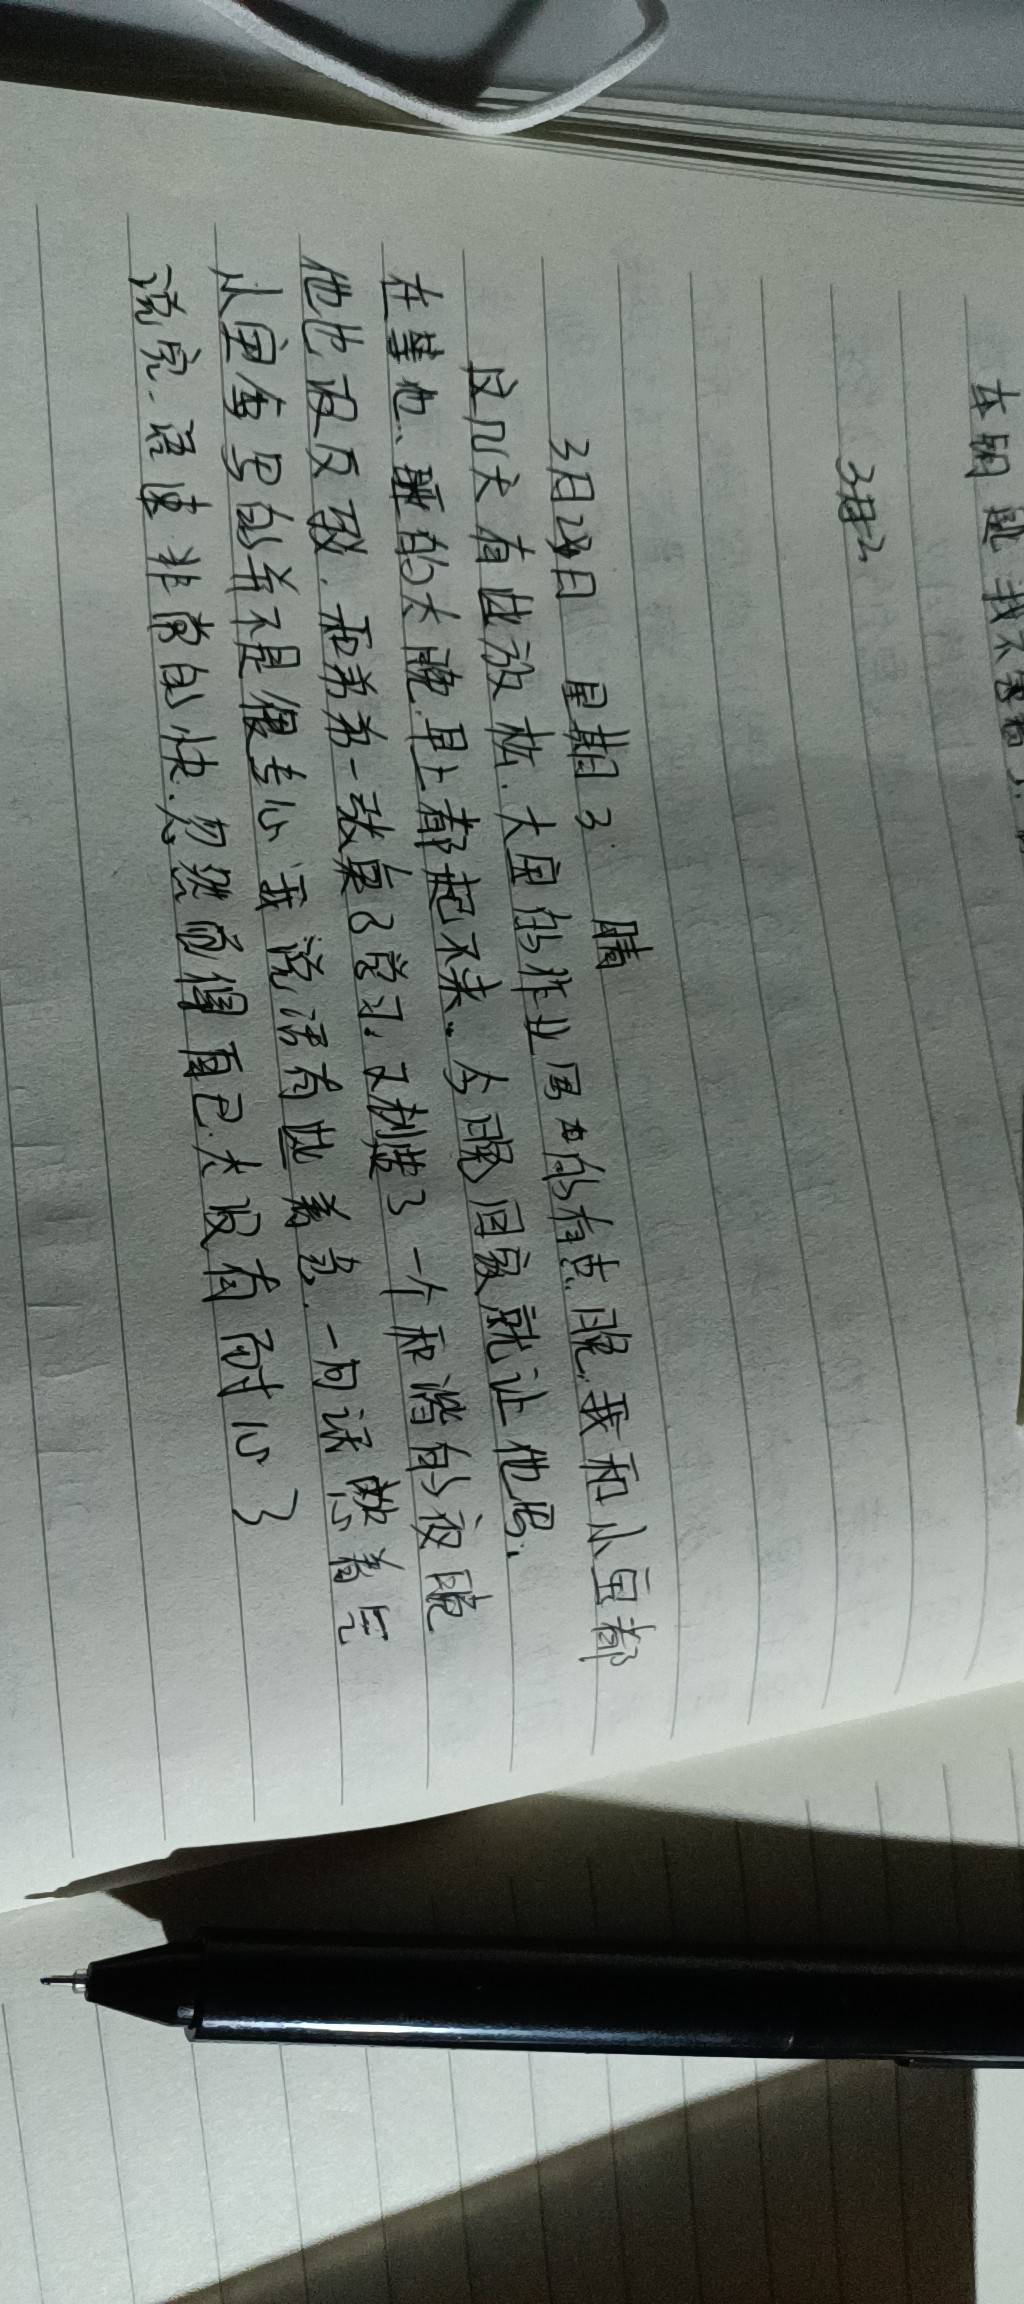 本周是我不
3月2
3月28日 星期3 晴
这几天有些放松.大宝的作业写的有点晚.我和小宝都
在等他、睡的太晚.早上都起不来.今晚回家就让他写.
他也没反驳.和弟弟一张桌子学习.又制造了一个和谐的夜晚
从宝写的并不是很专心 我说话有些着急.一句话 憋着气
说完.语速非常的快.忽然觉得自己太没有耐心了